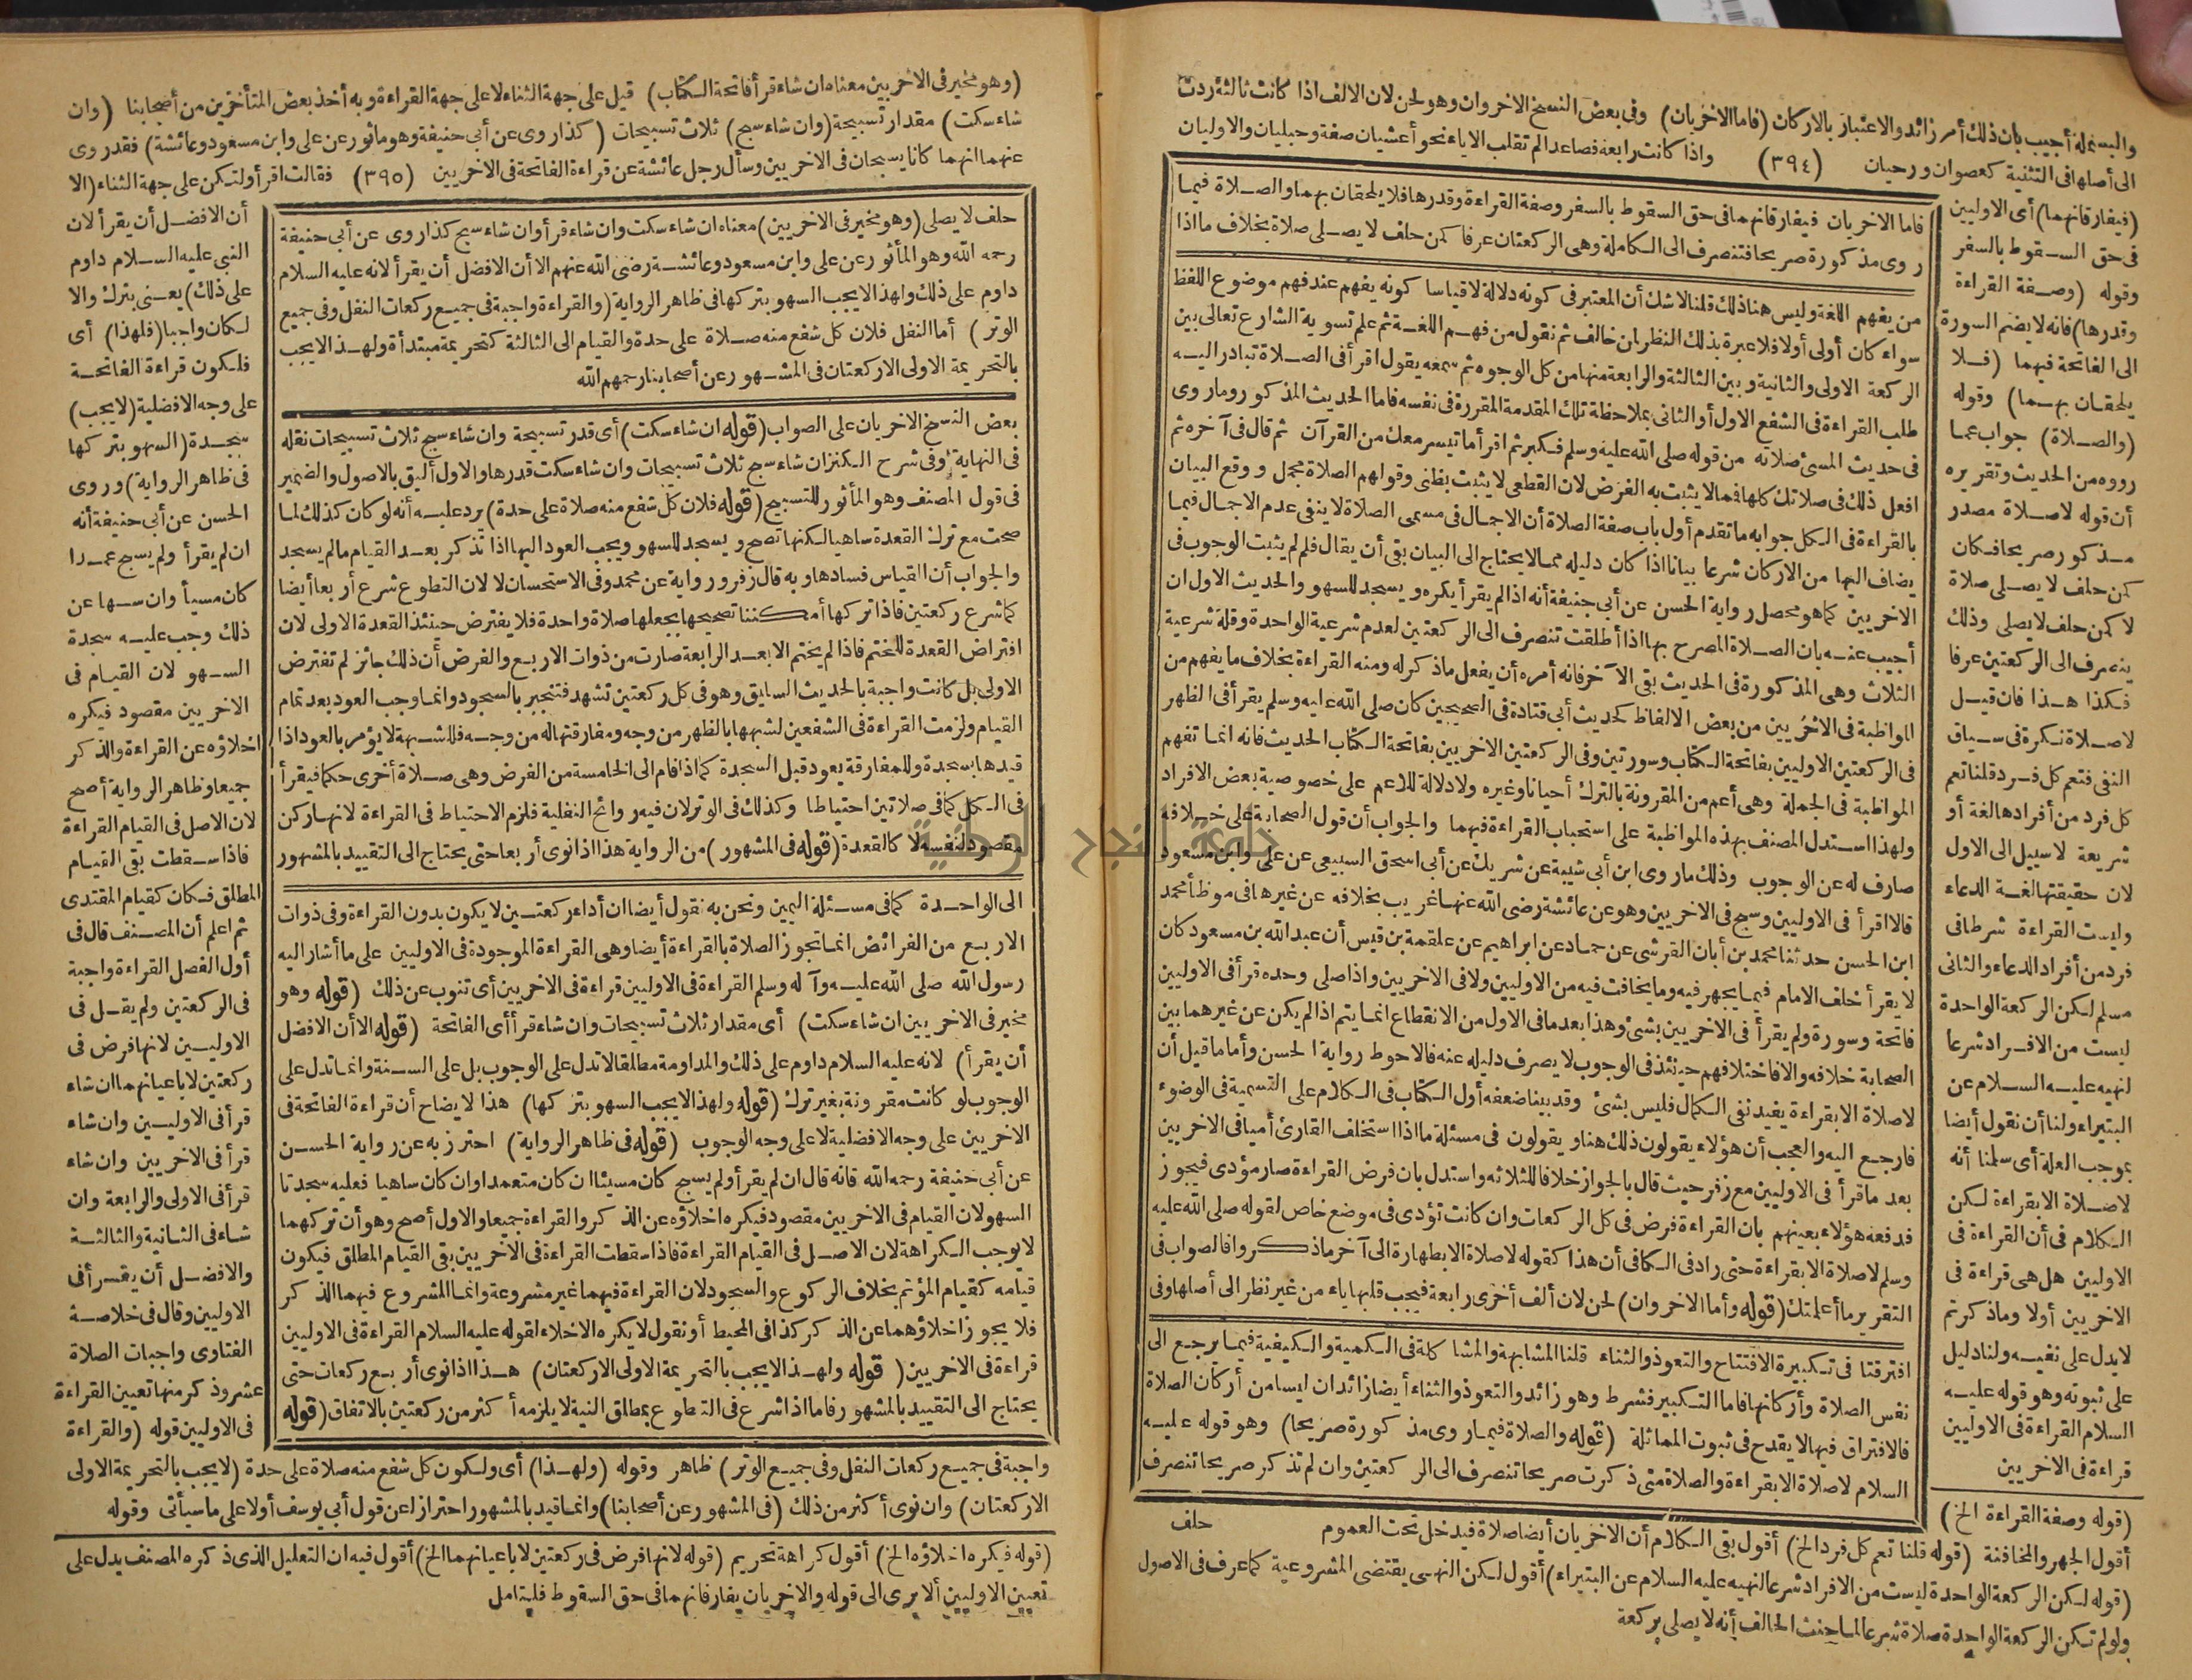 والبسملة أجيب بان ذلك أمر زائد والاعتبار بالاركان (فاما الاخريان) وفى بعض النسخ الاخروان وهو لحن لان الالف اذا كانت ثالثة ردت
الى أصلها فى التثنية كعصوان ورحيان (٣٩٤) واذا كانت رابعة فصاعدا لم تقلب الاياء نحو أعشيان صفة وحبليان والاوليان
(فيفارقانهما) أى الاوليين
فى حق السقوط بالسفر
وقوله (وصفة القراءة
وقدرها) فانه لا يضم السورة
الى الفاتحة فيهما (فلا
يلحقان بهما) وقوله
(والصلاة) جواب عما
رووه من الحديث وتقريره
أن قوله لا صلاة مصدر
مذكور صريحا فكان
كمن حلف لا يصلى صلاة
لا كمن حلف لا يصلى وذلك
ينصرف الى الركعتين عرفا
فكذا هذا فان قيل
لا صلاة نكرة فى سياق
النفى فتعم كل فرد قلنا تعم
كل فرد من أفرادها لغة أو
شريعة لا سبيل الى الاول
لان حقيقتها لغة الدعاء
وليست القراءة شرطا فى
فرد من أفراد الدعاء والثانى
مسلم لكن الركعة الواحدة
ليست من الافراد شرعا
لنهيه عليه السلام عن
البتيراء ولنا أن نقول أيضا
بموجب العلة أى سلمنا أنه
لا صلاة الا بقراءة لكن
الكلام فى أن القراءة فى
الاوليين هل هى قراءة فى
الاخريين أولا وما ذكرتم
لا يدل على نفيه ولنا دليل
على ثبوته وهو قوله عليه
السلام القراءة فى الاوليين
قراءة فى الاخريين
فاما الاخريان فيفارقانهما فى حق السقوط بالسفر وصفة القراءة وقدرها فلا يلحقان بهما والصلاة فيما
روى مذكورة صريحا فتنصرف الى الكاملة وهى الركعتان عرفا كمن حلف لا يصلى صلاة بخلاف ما اذا
من يفهم اللغة وليس هنا ذلك قلنا لا شك أن المعتبر فى كونه دلالة لا قياسا كونه يفهم عند فهم موضوع اللفظ
سواء كان أولى أولا فلا عبرة بذلك النظر ان خالف ثم نقول من فهم اللغة ثم علم تسوية الشارع تعالى بين
الركعة الاولى والثانية وبين الثالثة والرابعة منها من كل الوجوه ثم سمعه يقول اقرأ فى الصلاة تبادر اليه
طلب القراءة فى الشفع الاول أو الثانى بملاحظة تلك المقدمة المقررة فى نفسه فاما الحديث المذكور وما روى
فى حديث المسئ صلاته من قوله صلى الله عليه وسلم فكبر ثم اقرأ ما تيسر معك من القرآن ثم قال فى آخره ثم
افعل ذلك فى صلاتك كلها فما لا يثبت به الفرض لان القطعى لا يثبت بظنى وقولهم الصلاة مجمل ووقع البيان
بالقراءة فى الكل جوابه ما تقدم أول باب صفة الصلاة أن الاجمال فى مسمى الصلاة لا ينفى عدم الاجمال فيما
يضاف اليها من الاركان شرعا بيانا اذا كان دليله مما لا يحتاج الى البيان بقى أن يقال فلم لم يثبت الوجوب فى
الاخريين كما هو محصل رواية الحسن عن أبى حنيفة أنه اذا لم يقرأ يكره ويسجد للسهو والحديث الاول ان
أجيب عنه بان الصلاة المصرح بها اذا أطلقت تنصرف الى الركعتين لعدم شرعية الواحدة وقلة شرعية
الثلاث وهى المذكورة فى الحديث بقى الآخر فانه أمره أن يفعل ما ذكر له ومنه القراءة بخلاف ما يفهم من
المواظبة فى الاخريين من بعض الالفاظ كحديث أبى قتادة فى الصحيحين كان صلى الله عليه وسلم يقرأ فى الظهر
فى الركعتين الاوليين بفاتحة الكتاب وسورتين وفى الركعتين الاخريين بفاتحة الكتاب الحديث فانه انما تفهم
المواظبة فى الجملة وهى أعم من المقرونة بالترك أحيانا وغيره ولا دلالة للاعم على خصوصية بعض الافراد
ولهذا استدل المصنف بهذه المواظبة على استحباب القراءة فيهما والجواب أن قول الصحابة على خلافه
صارف له عن الوجوب وذلك ما روى ابن أبى شيبة عن شريك عن أبى اسحق السبيعى عن على وابن مسعود
قالا اقرأ فى الاوليين وسبح فى الاخريين وهو عن عائشة رضى الله عنها غريب بخلافه عن غيرها فى موطأ محمد
ابن الحسن حدثنا محمد بن أبان القرشى عن حماد عن ابراهيم عن علقمة بن قيس أن عبد الله بن مسعود كان
لا يقرأ خلف الامام فيما يجهر فيه وما يخافت فيه من الاوليين ولا فى الاخريين واذا صلى وحده قرأ فى الاوليين
فاتحة وسورة ولم يقرأ فى الاخريين بشئ وهذا بعد ما فى الاول من الانقطاع انما يتم اذا لم يكن عن غيرهما بين
الصحابة خلافه والا فاختلافهم حينئذ فى الوجوب لا يصرف دليله عنه فالاحوط رواية الحسن وأما ما قيل أن
لا صلاة الا بقراءة يفيد نفى الكمال فليس بشئ وقد بينا ضعفه أول الكتاب فى الكلام على التسمية فى الوضوء
فارجع اليه والعجب أن هؤلاء يقولون ذلك هنا ويقولون فى مسئلة ما اذا استخلف القارئ أميا فى الاخريين
بعد ما قرأ فى الاوليين مع زفر حيث قال بالجواز خلافا للثلاثه واستدل بان فرض القراءة صار مؤدى فيجوز
فدفعه هؤلاء بعينهم بان القراءة فرض فى كل الركعات وان كانت تؤدى فى موضع خاص لقوله صلى الله عليه
وسلم لا صلاة الا بقراءة حتى راد فى الكافى أن هذا كقوله لا صلاة الا بطهارة الى آخر ما ذكروا فالصواب فى
التقرير ما أعلمتك (قوله وأما الاخروان) لحن لان ألف أخرى رابعة فيجب قلبها ياء من غير نظر الى أصلها وفى
افترقتا فى تكبيرة الافتتاح والتعوذ والثناء قلنا المشابهة والمشاكلة فى الكمية والكيفية فيما يرجع الى
نفس الصلاة وأركانها فاما التكبير فشرط وهو زائد والتعوذ والثناء أيضا زائدان ليسا من أركان الصلاة
فالافتراق فيها لا يقدح فى ثبوت المماثلة (قوله والصلاة فيما روى مذكورة صريحا) وهو قوله عليه
السلام لا صلاة الا بقراءة والصلاة متى ذكرت صريحا تنصرف الى الركعتين وان لم تذكر صريحا تنصرف
(قوله وصفة القراءة الخ)
أقول الجهر والمخافتة (قوله قلنا تعم كل فرد الخ) أقول بقى الكلام أن الاخريان أيضا صلاة فيدخل تحت العموم حلف
(قوله لكن الركعة الواحدة ليست من الافراد شرعا لنهيه عليه السلام عن البتيراء) أقول لكن النهى يقتضى المشروعية كما عرف فى الاصول
ولو لم تكن الركعة الواحدة صلاة شرعا لما حنث الحالف أنه لا يصلى بركعة
(وهو مخير فى الاخريين معناه ان شاء قرأ فاتحة الكتاب) قيل على جهة الثناء لا على جهة القراءة وبه أخذ بعض المتأخرين من أصحابنا (وان
شاء سكت) مقدار تسبيحة (وان شاء سبح) ثلاث تسبيحات (كذا روى عن أبى حنيفة وهو مأثور عن على وابن مسعود وعائشة) فقد روى
عنهما انهما كانا يسبحان فى الاخريين وسأل رجل عائشة عن قراءة الفاتحة فى الاخريين (٣٩٥) فقالت اقرأ ولتكن على جهة الثناء (الا
حلف لا يصلى (وهو مخير فى الاخريين) معناه ان شاء سكت وان شاء قرأ وان شاء سبح كذا روى عن أبى حنيفة
رحمه الله وهو المأثور عن على وابن مسعود وعائشة رضى الله عنهم الا أن الافضل أن يقرأ لانه عليه السلام
داوم على ذلك ولهذا لا يجب السهو بتركها فى ظاهر الرواية (والقراءة واجبة فى جميع ركعات النفل وفى جميع
الوتر) أما النفل فلان كل شفع منه صلاة على حدة والقيام الى الثالثة كتحريمة مبتدأة ولهذا لا يجب
بالتحريمة الاولى الا ركعتان فى المشهور عن أصحابنا رحمهم الله
بعض النسخ الاخريان على الصواب (قوله ان شاء سكت) أى قدر تسبيحة وان شاء سبح ثلاث تسبيحات نقله
فى النهاية وفى شرح الكنز ان شاء سبح ثلاث تسبيحات وان شاء سكت قدرها والاول أليق بالاصول والضمير
فى قول المصنف وهو المأثور للتسبيح (قوله فلان كل شفع منه صلاة على حدة) يرد عليه أنه لو كان كذلك لما
صحت مع ترك القعدة ساهيا لكنها تصح ويسجد للسهو ويجب العود اليها اذا تذكر بعد القيام ما لم يسجد
والجواب أن القياس فسادها وبه قال زفر ورواية عن محمد وفى الاستحسان لا لان التطوع شرع أربعا أيضا
كما شرع ركعتين فاذا تركها أمكننا تصحيحها بجعلها صلاة واحدة فلا يفترض حينئذ القعدة الاولى لان
افتراض القعدة للختم فاذا لم يختم الا بعد الرابعة صارت من ذوات الاربع والفرض أن ذلك جائز لم تفترض
الاولى بل كانت واجبة بالحديث السابق وهو فى كل ركعتين تشهد فتنجبر بالسجود وانما وجب العود بعد تمام
القيام ولزمت القراءة فى الشفعين لشبهها بالظهر من وجه ومفارقتها له من وجه فللشبهة لا يؤمر بالعود اذا
قيدها بسجدة وللمفارقة يعود قبل السجدة كما اذا قام الى الخامسة من الفرض وهى صلاة أخرى حكما فيقرأ
فى الكل كما فى صلاتين احتياطا وكذلك فى الوتر لان فيه روائح النفلية فلزم الاحتياط فى القراءة لانها ركن
مقصود لنفسه لا كالقعدة (قوله فى المشهور) من الرواية هذا اذا نوى أربعا حتى يحتاج الى التقييد بالمشهور
الى الواحدة كما فى مسئلة اليمين ونحن به نقول أيضا ان أداء ركعتين لا يكون بدون القراءة وفى ذوات
الاربع من الفرائض انما تجوز الصلاة بالقراءة أيضا وهى القراءة الموجودة فى الاوليين على ما أشار اليه
رسول الله صلى الله عليه وآله وسلم القراءة فى الاوليين قراءة فى الاخريين أى تنوب عن ذلك (قوله وهو
مخير فى الاخريين ان شاء سكت) أى مقدار ثلاث تسبيحات وان شاء قرأ أى الفاتحة (قوله الا أن الافضل
أن يقرأ) لانه عليه السلام داوم على ذلك والمداومة مطلقا لا تدل على الوجوب بل على السنة وانما تدل على
الوجوب لو كانت مقرونة بغير ترك (قوله ولهذا لا يجب السهو بتركها) هذا لايضاح أن قراءة الفاتحة فى
الاخريين على وجه الافضلية لا على وجه الوجوب (قوله فى ظاهر الرواية) احترز به عن رواية الحسن
عن أبى حنيفة رحمه الله فانه قال ان لم يقرأ ولم يسبح كان مسيئا ان كان متعمدا وان كان ساهيا فعليه سجدتا
السهو لان القيام فى الاخريين مقصود فيكره اخلاؤه عن الذكر والقراءة جميعا والاول أصح وهو أن تركهما
لا يوجب الكراهة لان الاصل فى القيام القراءة فاذا سقطت القراءة فى الاخريين بقى القيام المطلق فيكون
قيامه كقيام المؤتم بخلاف الركوع والسجود لان القراءة فيهما غير مشروعة وانما المشروع فيهما الذكر
فلا يجوز اخلاؤهما عن الذكر كذا فى المحيط أو نقول لا يكره الاخلاء لقوله عليه السلام القراءة فى الاوليين
قراءة فى الاخريين (قوله ولهذا لا يجب بالتحريمة الاولى الا ركعتان) هذا اذا نوى أربع ركعات حتى
يحتاج الى التقييد بالمشهور فاما اذا شرع فى التطوع بمطلق النية لا يلزمه أكثر من ركعتين بالاتفاق (قوله
أن الافضل أن يقرأ لان
النبى عليه السلام داوم
على ذلك) يعنى بترك والا
لكان واجبا (فلهذا) أى
فلكون قراءة الفاتحة
على وجه الافضلية (لا يجب)
سجدة (السهو بتركها
فى ظاهر الرواية) وروى
الحسن عن أبى حنيفة أنه
ان لم يقرأ ولم يسبح عمدا
كان مسيأ وان سها عن
ذلك وجب عليه سجدة
السهو لان القيام فى
الاخريين مقصود فيكره
اخلاؤه عن القراءة والذكر
جميعا وظاهر الرواية أصح
لان الاصل فى القيام القراءة
فاذا سقطت بقى القيام
المطلق فكان كقيام المقتدى
ثم اعلم أن المصنف قال فى
أول الفصل القراءة واجبة
فى الركعتين ولم يقل فى
الاوليين لانها فرض فى
ركعتين لا باعيانهما ان شاء
قرأ فى الاوليين وان شاء
قرأ فى الاخريين وان شاء
قرأ فى الاولى والرابعة وان
شاء فى الثانية والثالثة
والافضل أن يقرأ فى
الاوليين وقال فى خلاصة
الفتاوى واجبات الصلاة
عشر وذكر منها تعيين القراءة
فى الاوليين قوله (والقراءة
واجبة فى جميع ركعات النفل وفى جميع الوتر) ظاهر وقوله (ولهذا) أى ولكون كل شفع منه صلاة على حدة (لا يجب بالتحريمة الاولى
الا ركعتان) وان نوى أكثر من ذلك (فى المشهور عن أصحابنا) وانما قيد بالمشهور احترازا عن قول أبى يوسف أولا على ما سيأتى وقوله
(قوله فيكره اخلاؤه الخ) أقول كراهة تحريم (قوله لانها فرض فى ركعتين لا باعيانهما الخ) أقول فيه ان التعليل الذى ذكره المصنف يدل على
تعيين الاوليين ألا يرى الى قوله والاخريان يفارقانهما فى حق السقوط فليتامل
جامعة النجاح الوطنية